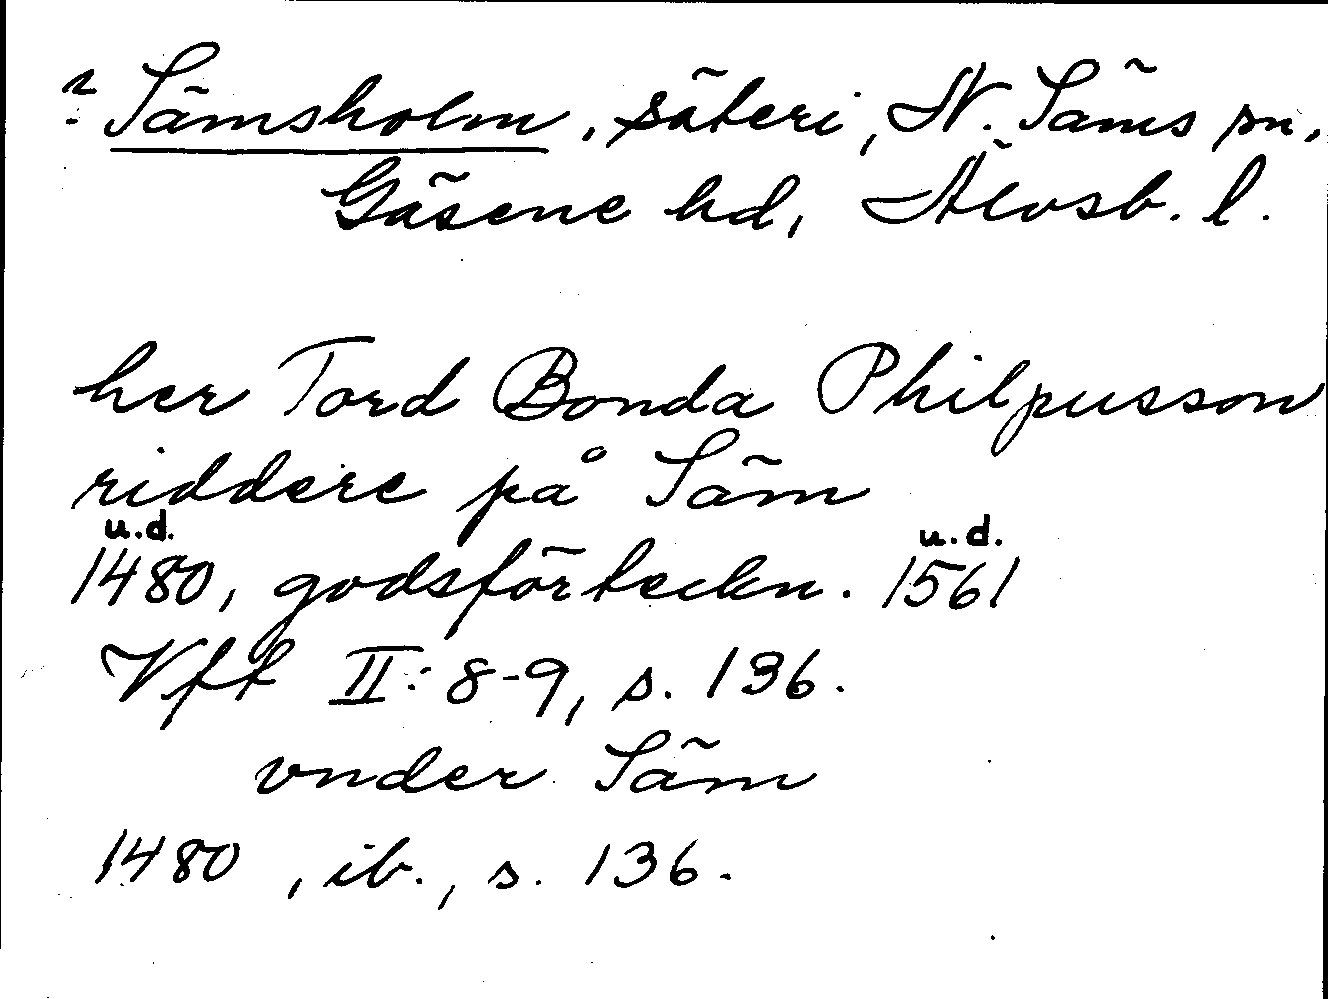 ? Sämsholm, säteri, N. Säms sn,
Gäsene hd, Älvsb. l.
her Tord Bonda Philpusson
riddere på Säm
u.d. u.d.
1480, godsförteckn. 1561
Vft II: 8-9, s. 136.
vnder Säm
1480, ib., s. 136.